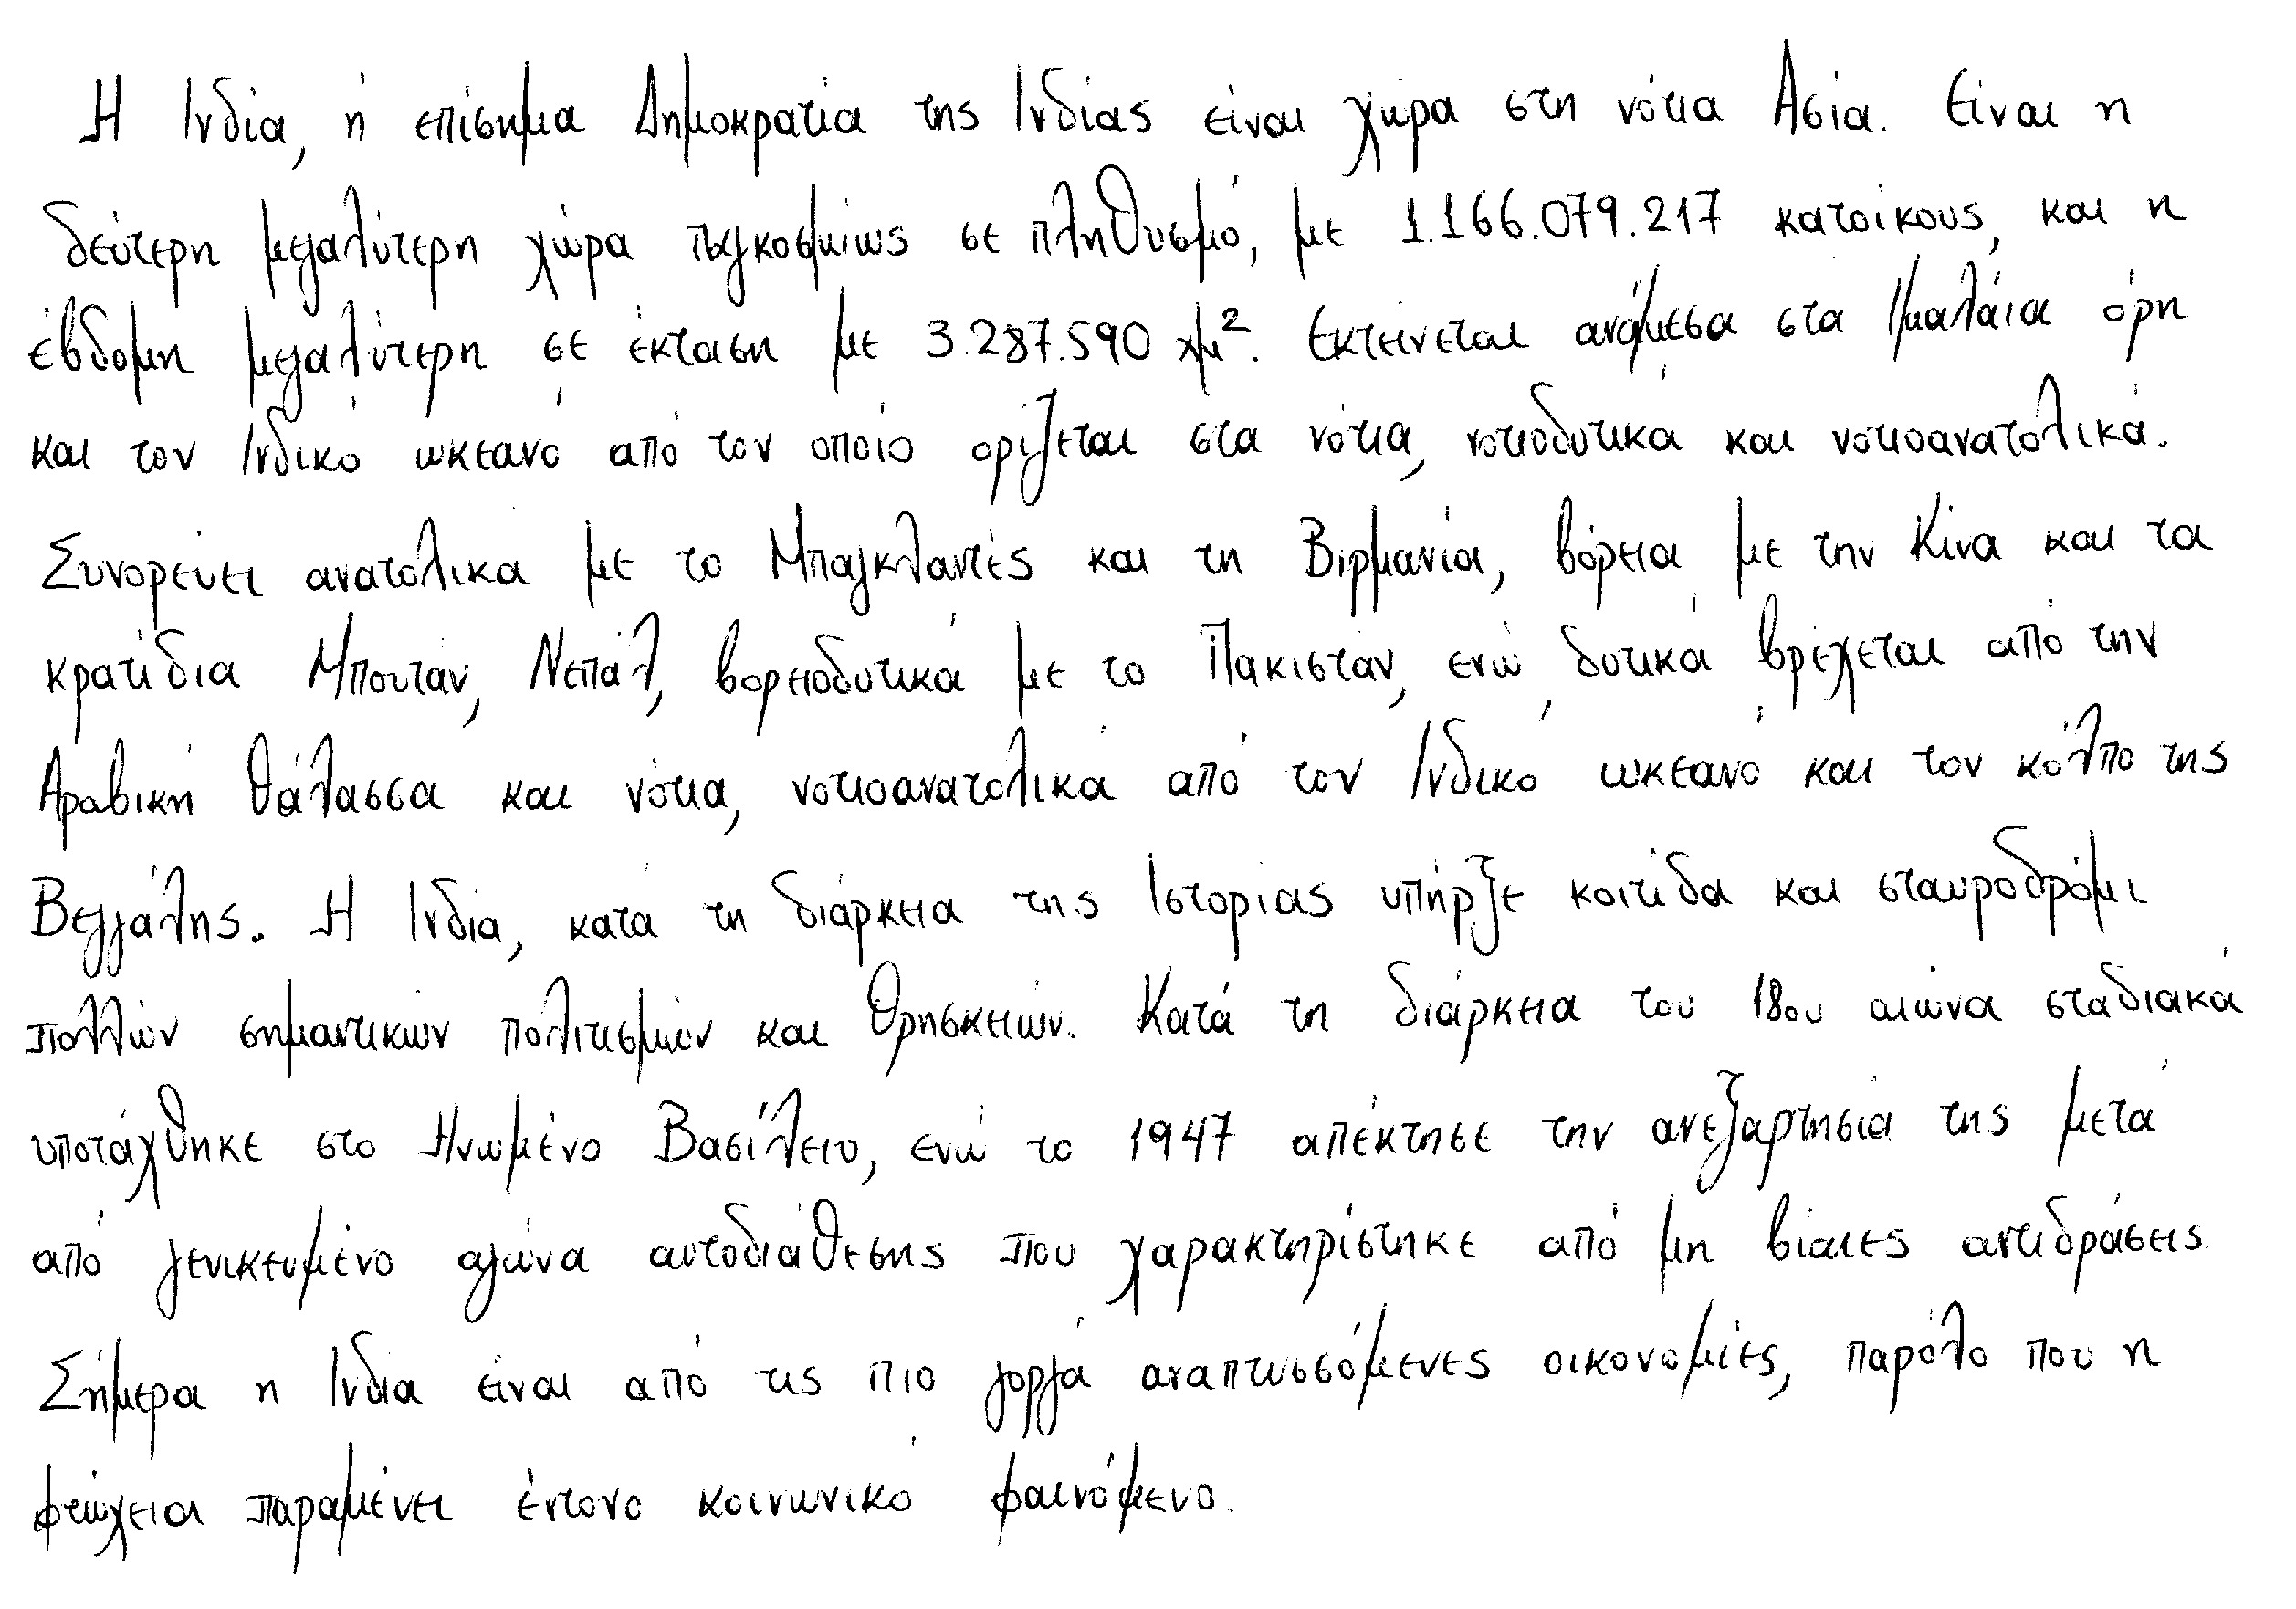 Η Ινδία, ή επίσημα Δημοκρατία της Ινδίας είναι χώρα στη νότια Ασία. Είναι η
δεύτερη μεγαλύτερη χώρα παγκοσμίως σε πληθυσμό, με 1.166.079.217 κατοίκους, και η
έβδομη μεγαλύτερη σε έκταση με 3.287.590 χμ². Εκτείνεται ανάμεσα στα Ιμαλάια όρη
και τον Ινδικό ωκεανό από τον οποίο ορίζεται στα νότια, νοτιοδυτικά και νοτιοανατολικά.
Συνορεύει ανατολικά με το Μπαγκλαντές και τη Βιρμανία, βόρεια με την Κίνα και τα
κρατίδια Μπουτάν, Νεπάλ, βορειοδυτικά με το Πακιστάν, ενώ δυτικά βρέχεται από την
Αραβική θάλασσα και νότια, νοτιοανατολικά από τον Ινδικό ωκεανό και τον κόλπο της
Βεγγάλης. Η Ινδία, κατά τη διάρκεια της Ιστορίας υπήρξε κοιτίδα και σταυροδρόμι
πολλών σημαντικών πολιτισμών και θρησκειών. Κατά τη διάρκεια του 18ου αιώνα σταδιακά
υποτάχθηκε στο Ηνωμένο Βασίλειο, ενώ το 1947 απέκτησε την ανεξαρτησία της μετά
από γενικευμένο αγώνα αυτοδιάθεσης που χαρακτηρίστηκε από μη βίαιες αντιδράσεις.
Σήμερα η Ινδία είναι από τις πιο γοργά αναπτυσσόμενες οικονομίες, παρόλο που η
φτώχεια παραμένει έντονο κοινωνικό φαινόμενο.